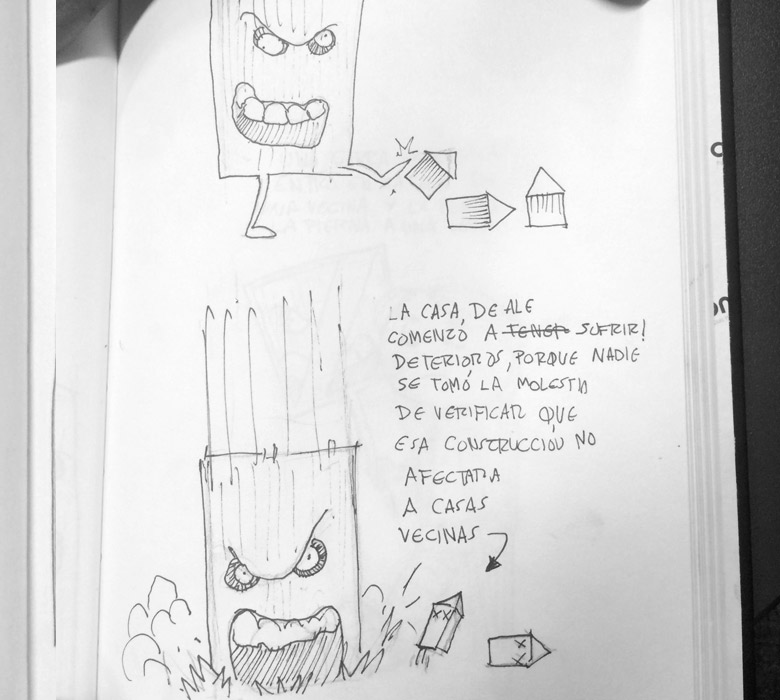 LA CASA, DE ALE
COMENZÓ A TENER SUFRIR!
DETERIOROS, PORQUE NADIE
SE TOMÓ LA MOLESTIA
DE VERIFICAR QUE
ESA CONSTRUCCION NO
AFECTARA
A CASAS
VECINAS